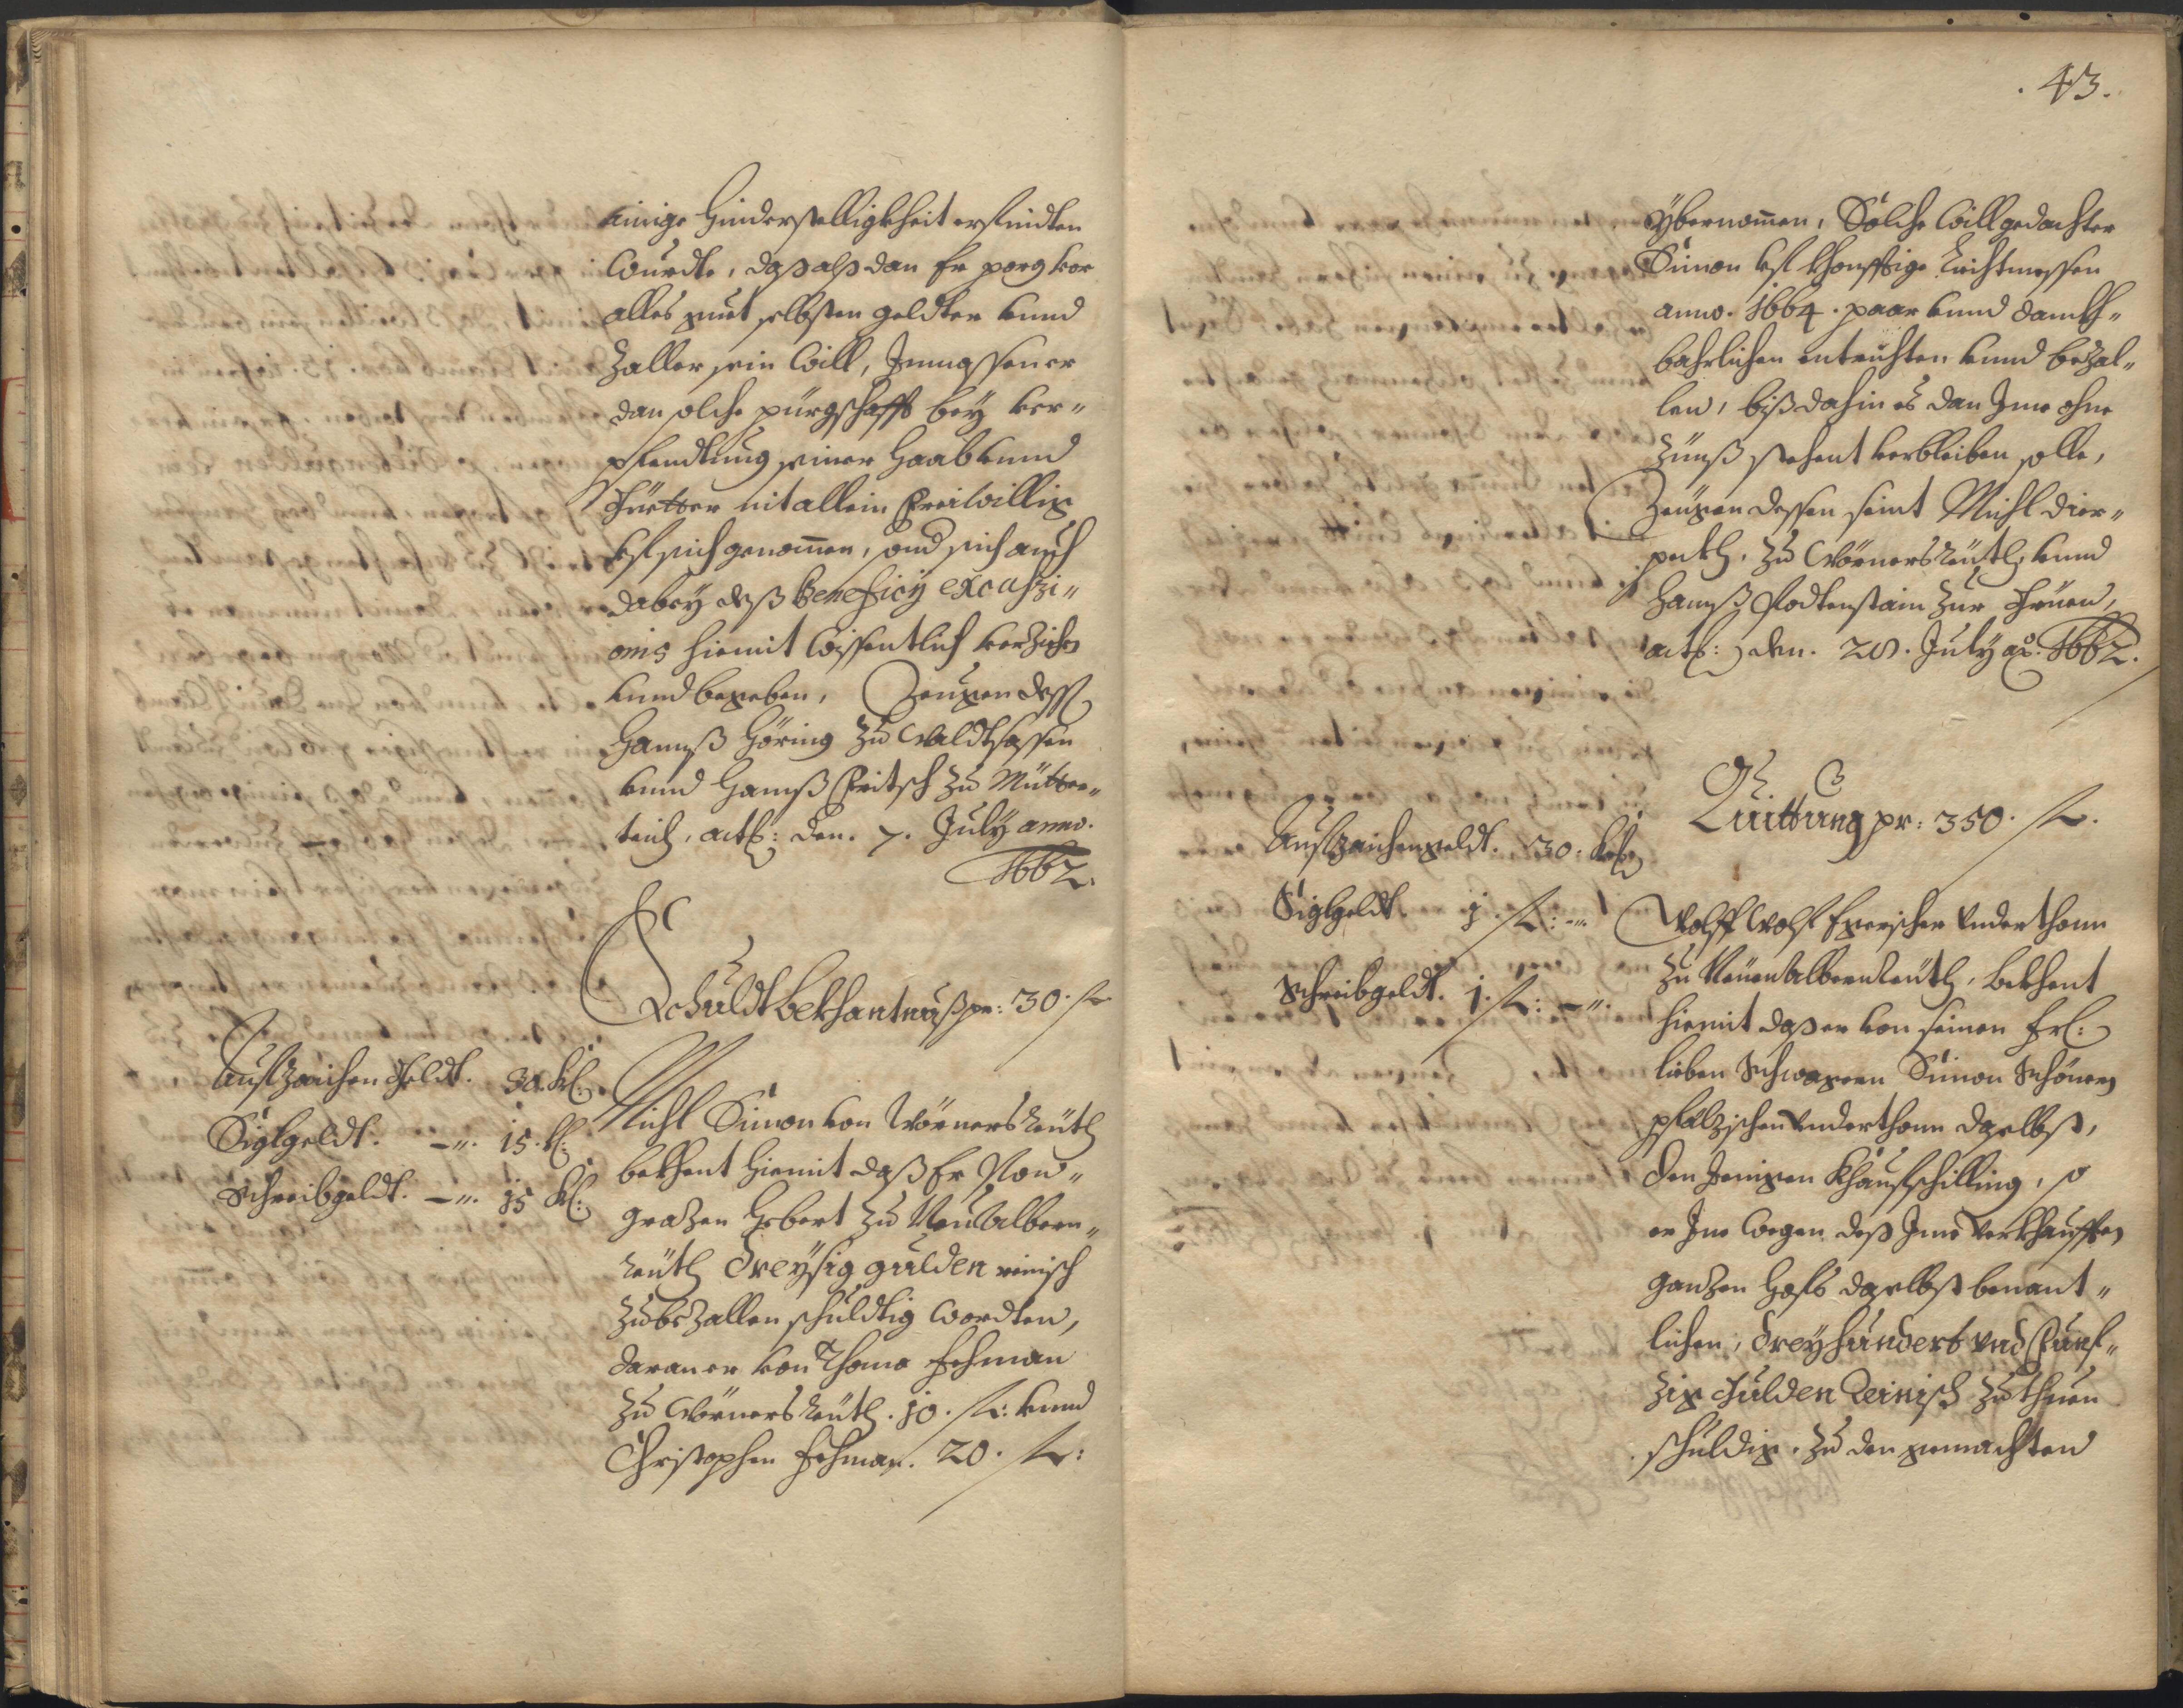 einige Hinderstelligkheit erfindten
Wurdte, daß alßdan Er porg vor
alles guet selbsten geldten vnnd
Zaller sein Will, Inmassen er
dan solche pürgschafft bey ver-
pfendtung seiner Haab vnnd
Güetter nit allein freiwillig
vf sich genommen, sond sich auch
dabey deß Beneficij excussi-
onis hiemit wissentlich verzichen
vnnd begeben, Zeugen dessen
Hannß Höring zu Waldtsassen
vnnd Hannß Fritsch zu Mütter-
teich, actum: den. 7. July anno.
1662.
Schuldtbekhantnuß pr: 30. fl
Aufzaichen Geldt. 30. kr:
Siglgeldt. -". 15. kr:
Schreibgeldt. -". 15 kr:
Michl Simon von Wörnersreüth
bekhent hiemit daß Er
Gebert zu Neualbern-
reüth dreysig gulden reinisch
zubezallen schuldtig wordten,
daran er von Thoma Lehman
zu Wörnersreüth. 10. fl: vnnd
Christophen Lehman. 20. fl:
.43.
Ybernommen, Solche Will gedachter
Simon vf khonfftige Liechtmessen
anno. 1664. paar vnnd danckh-
bahrlichen entrichten vnnd bezal-
len, biß dahin es dan Ime ohne
Zünß stehent verbleiben solle,
Zeugen dessen seint Michl dier-
peckh. zu Wörnersreüth, vnnd
Hannß Rodtenstain zur Gruen,
actum: den. 28. July ao. 1662.
Quittung pr: 350. fl.
Aufzaichengeldt. 30. kr:
Siglgeldt. 1. fl: -".
Schreibgeldt. 1. fl: -".
Wolff Wolf Egerischer Vnderthonn
zu Neuenalbernreüth, bekhent
hiemit daß er von seinen frl:
lieben Schwagern Simon Schönern
pfalzischen Vnderthonn daselbst,
den Jenigen Khaufschilling, so
er Ime wegen deß Ime Verkhaufften
ganzen Hofs daselbst benant-
lichen, dreyhundert vnd funf-
zig Gulden Reinisch zuthuen
schuldig. zu den gemachten